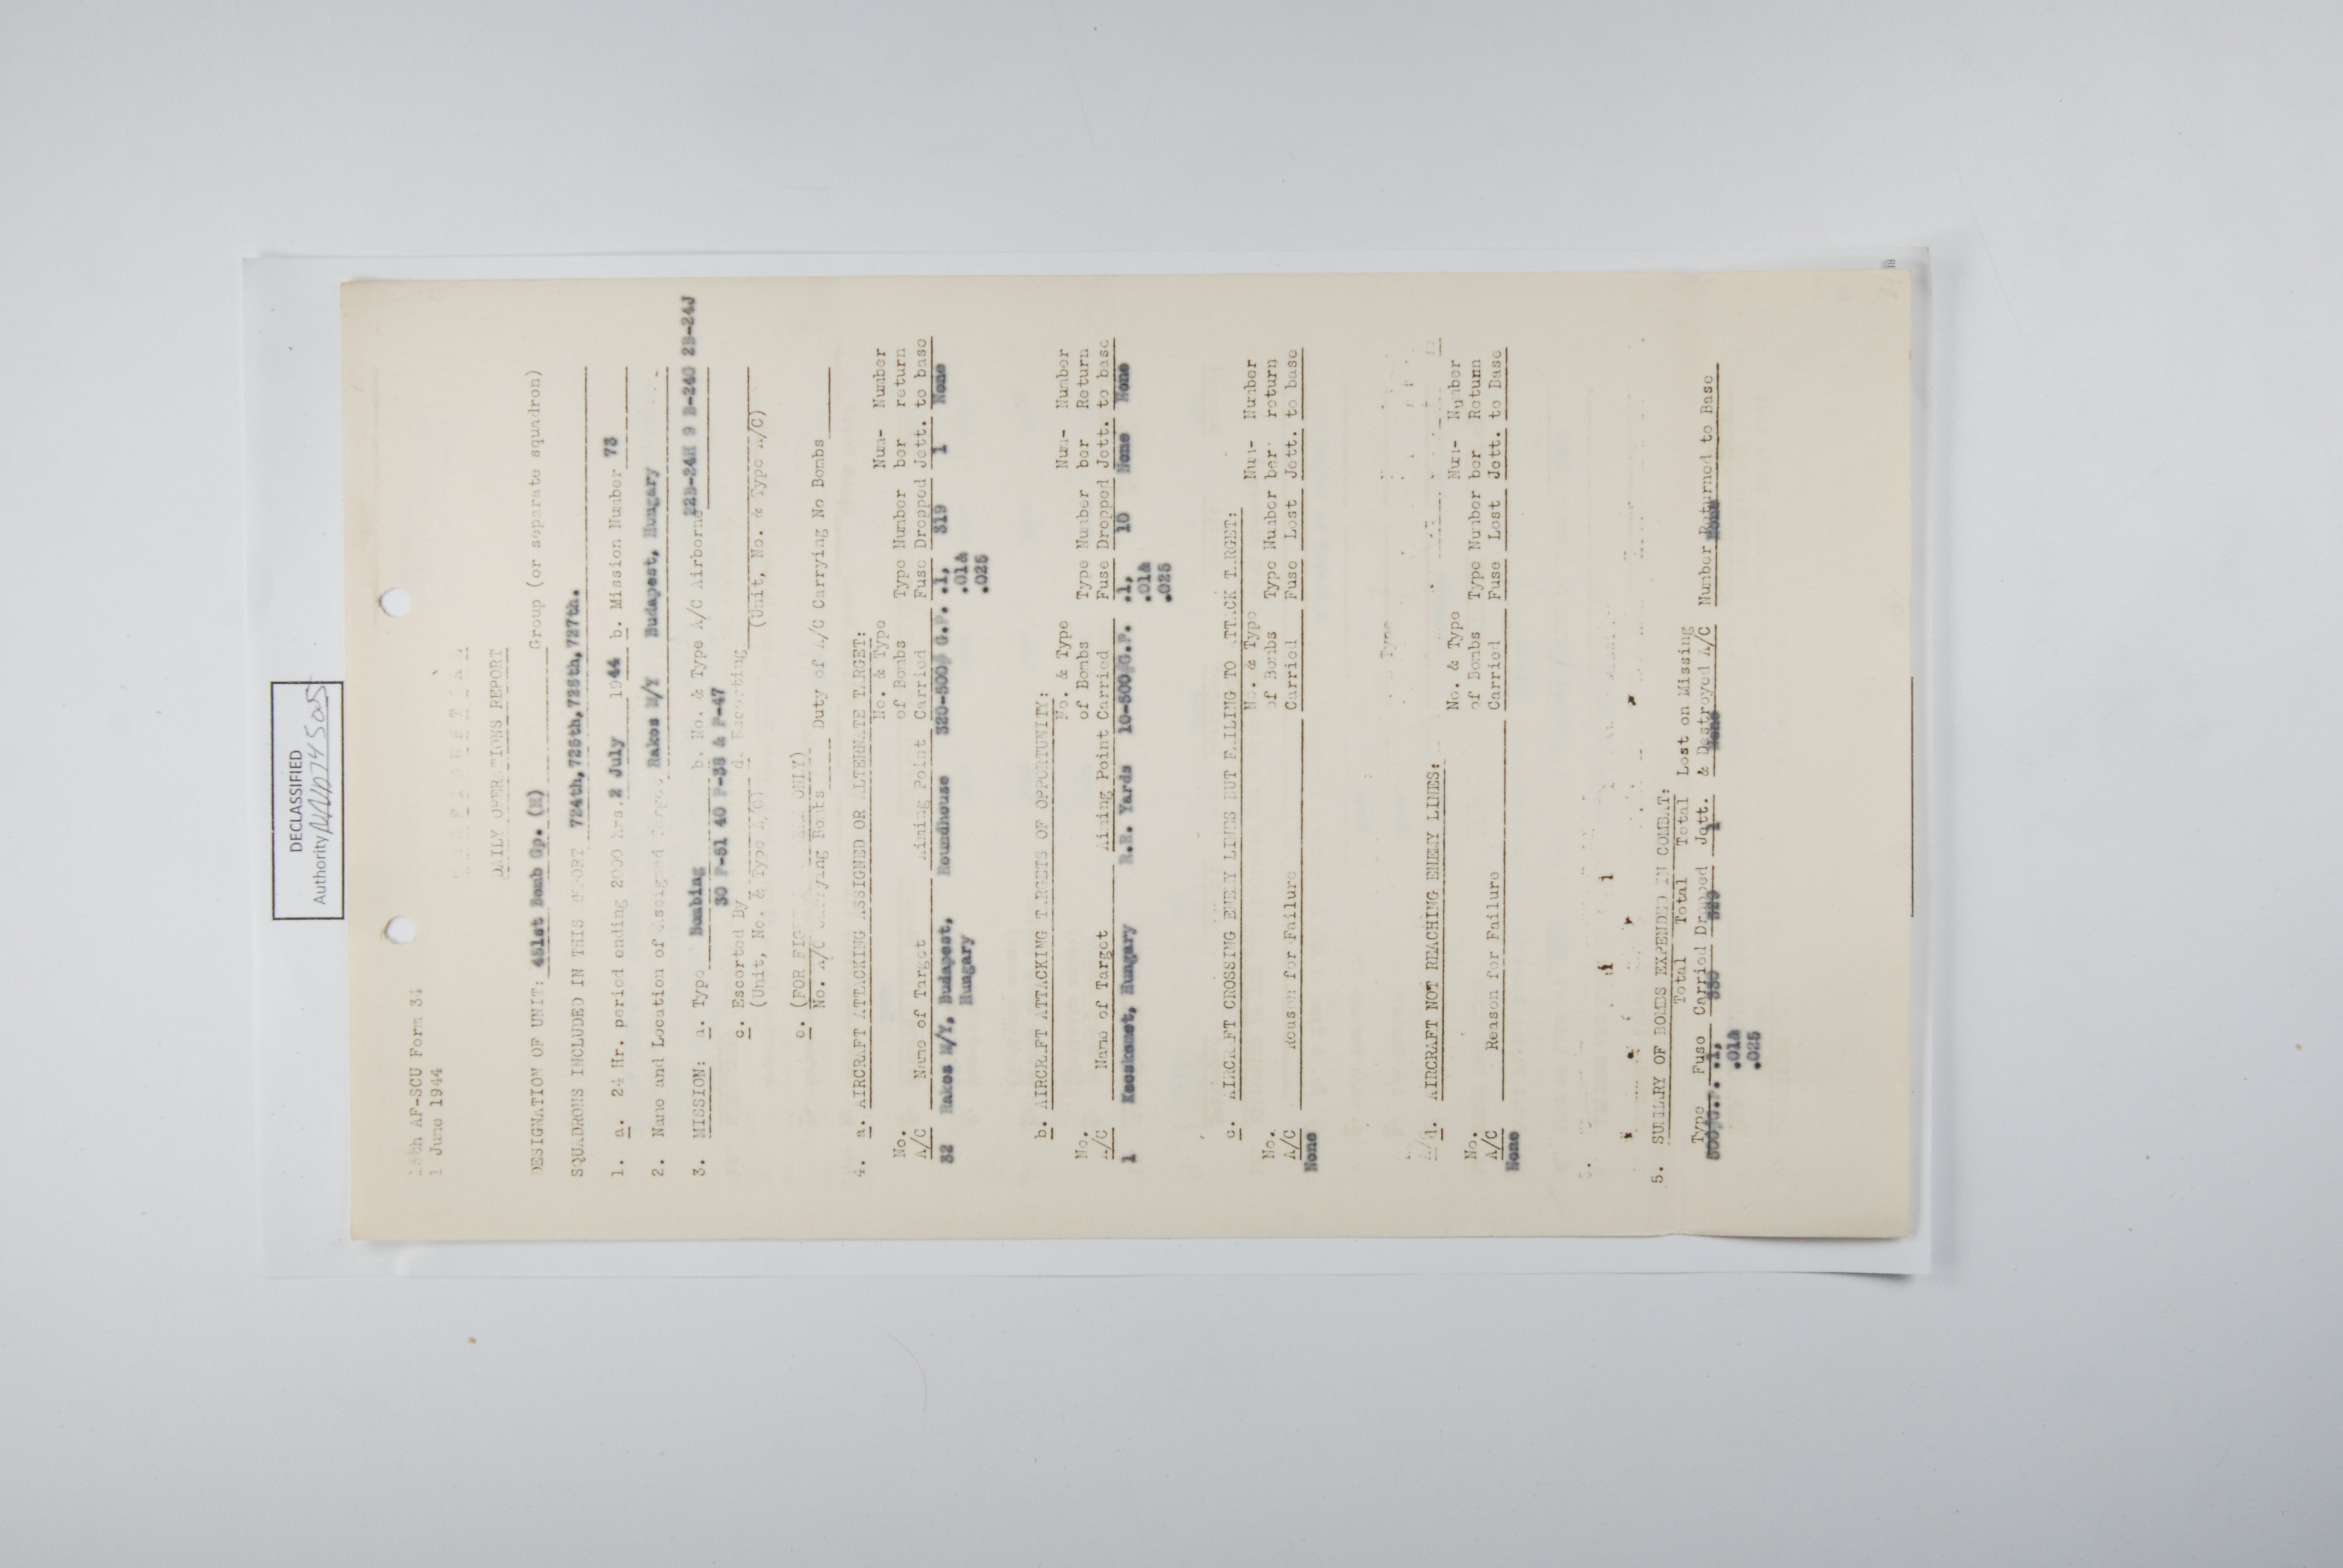 DECLASSIFIED
Authority NND745005
15th AF-SCU Form 31
1 June 1944
DAILY OPERATIONS REPORT
DESIGNATION OF UNIT: 451st Bomb Gp. (H) Group (or separate squadron)
SQUADRONS INCLUDED IN THIS REPORT 724th,725th,726th,727th.
1. a. 24 Hr. period ending 2000 hrs. 2 July 1944 b. Mission Number 73
2. Name and Location of Assigned Target, Rakos M/Y Budapest, Hungary
3. MISSION: a. Type Bombing b. No. & Type A/C Airborne 22B-24H 9 B-24G 2B-24J
30 P-51 40 P-38 & P-47
c. Escorted By d. Escorting
(Unit, No. & Type A/C) (Unit, No. & Type A/C)
e. (FOR FIGHTERS ONLY)
No. A/C Carrying Bombs Duty of A/C Carrying No Bombs
4. a. AIRCRAFT ATTACKING ASSIGNED OR ALTERNATE TARGET:
No. & Type Num- Number
No. of Bombs Type Number ber return
A/C Name of Target Aiming Point Carried Fuse Dropped Jett. to base
32 Rakos M/Y, Budapest, Roundhouse 320-500# G.P. .1, 319 1 None
Hungary .01&
.025
b. AIRCRAFT ATTACKING TARGETS OF OPPORTUNITY:
No. & Type Num- Number
No. of Bombs Type Number ber Return
A/C Name of Target Aiming Point Carried Fuse Dropped Jett. to base
1 Kecskemet, Hungary R.R. Yards 10-500#G.P. .1, 10 None None
.01&
.025
c. AIRCRAFT CROSSING ENEMY LINES BUT FAILING TO ATTACK TARGET:
No. & Type Num- Number
No. of Bombs Type Number ber return
A/C Reason for Failure Carried Fuse Lost Jett. to base
None
d. AIRCRAFT NOT REACHING ENEMY LINES:
No. & Type Num- Number
No. of Bombs Type Number ber Return
A/C Reason for Failure Carried Fuse Lost Jett. to Base
None
5. SUMMARY OF BOMBS EXPENDED IN COMBAT:
Total Total Total Lost on Missing
Type Fuse Carried Dropped Jett. & Destroyed A/C Number Returned to Base
500#G.P. .1, 330 329 1 None None
.01&
.025